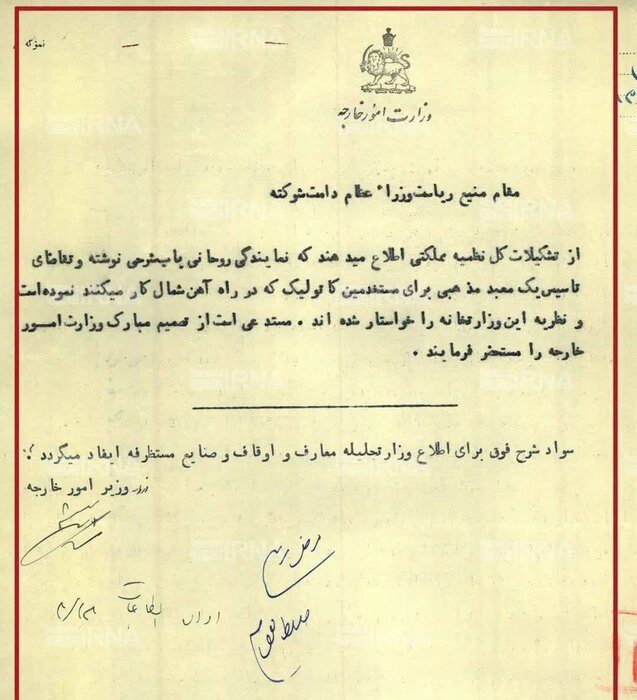 نمونه
وزارت امور خارجه
مقام منیع ریاست وزراء عظام دامت شوکته
از تشکیلات کل نظمیه مملکتی اطلاع میدهند که نمایندگی روحانی پاپ شرحی نوشته و تقاضای
تاسیس یک معبد مذهبی برای مستخدمین کاتولیک که در راه آهن شمال کار میکنند نموده است
و نظریه این وزارتخانه را خواستار شده اند . مستدعی است از تصمیم مبارک وزارت امور
خارجه را مستحضر فرمایند .
سواد شرح فوق برای اطلاع وزارتجلیله معارف و اوقاف و صنایع مستظرفه ایفاد میگردد
وزیر امور خارجه
IRNA